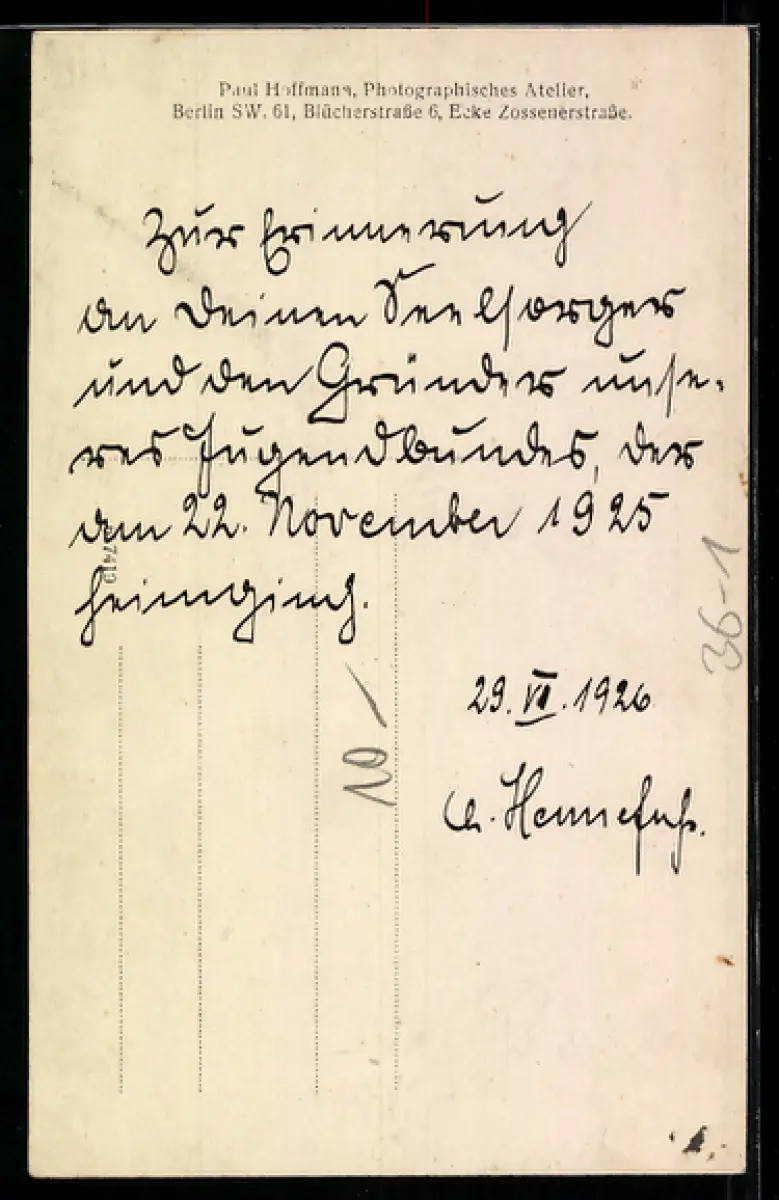 Paul Hoffmann, Photographisches Atelier,
Berlin SW. 61, Blücherstraße 6, Ecke Zossenerstraße.
Zur Erinnerung
an Deinen Seelsorger
und den Gründer unse-
res Jugendbundes, der
am 22. November 1925
heimging.
7419
29. VI. 1926
36-1
10